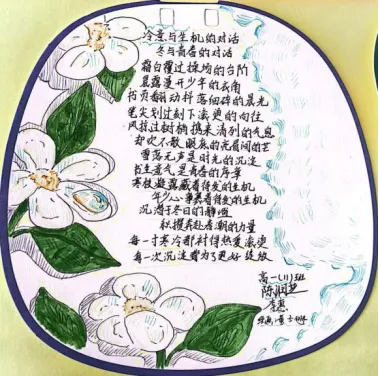 冷意与生机的对话
冬与青春的对话
霜白覆过操场的台阶
晨露漫开少年的衣角
书页翻动抖落细碎的晨光
笔尖划过刻下滚烫的向往
风掠过树梢携来清冽的气息
却吹不散眼底的光眉间的芒
雪落无声是时光的沉淀
书生意气是青春的序章
寒枝凝露藏着待发的生机
年少心事裹着待发的生机
沉淌于冬日的静谧
积攒奔赴春潮的力量
每一寸寒冷都衬得热爱滚烫
每一次沉淀都为了更好绽放
高一(11)班